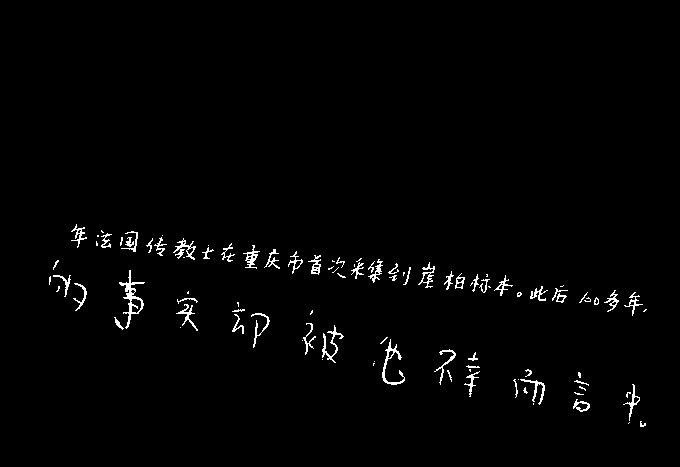 年法国传教士在重庆市首次采集到崖柏标本。此后100多年,
的事实却被他不幸而言中。